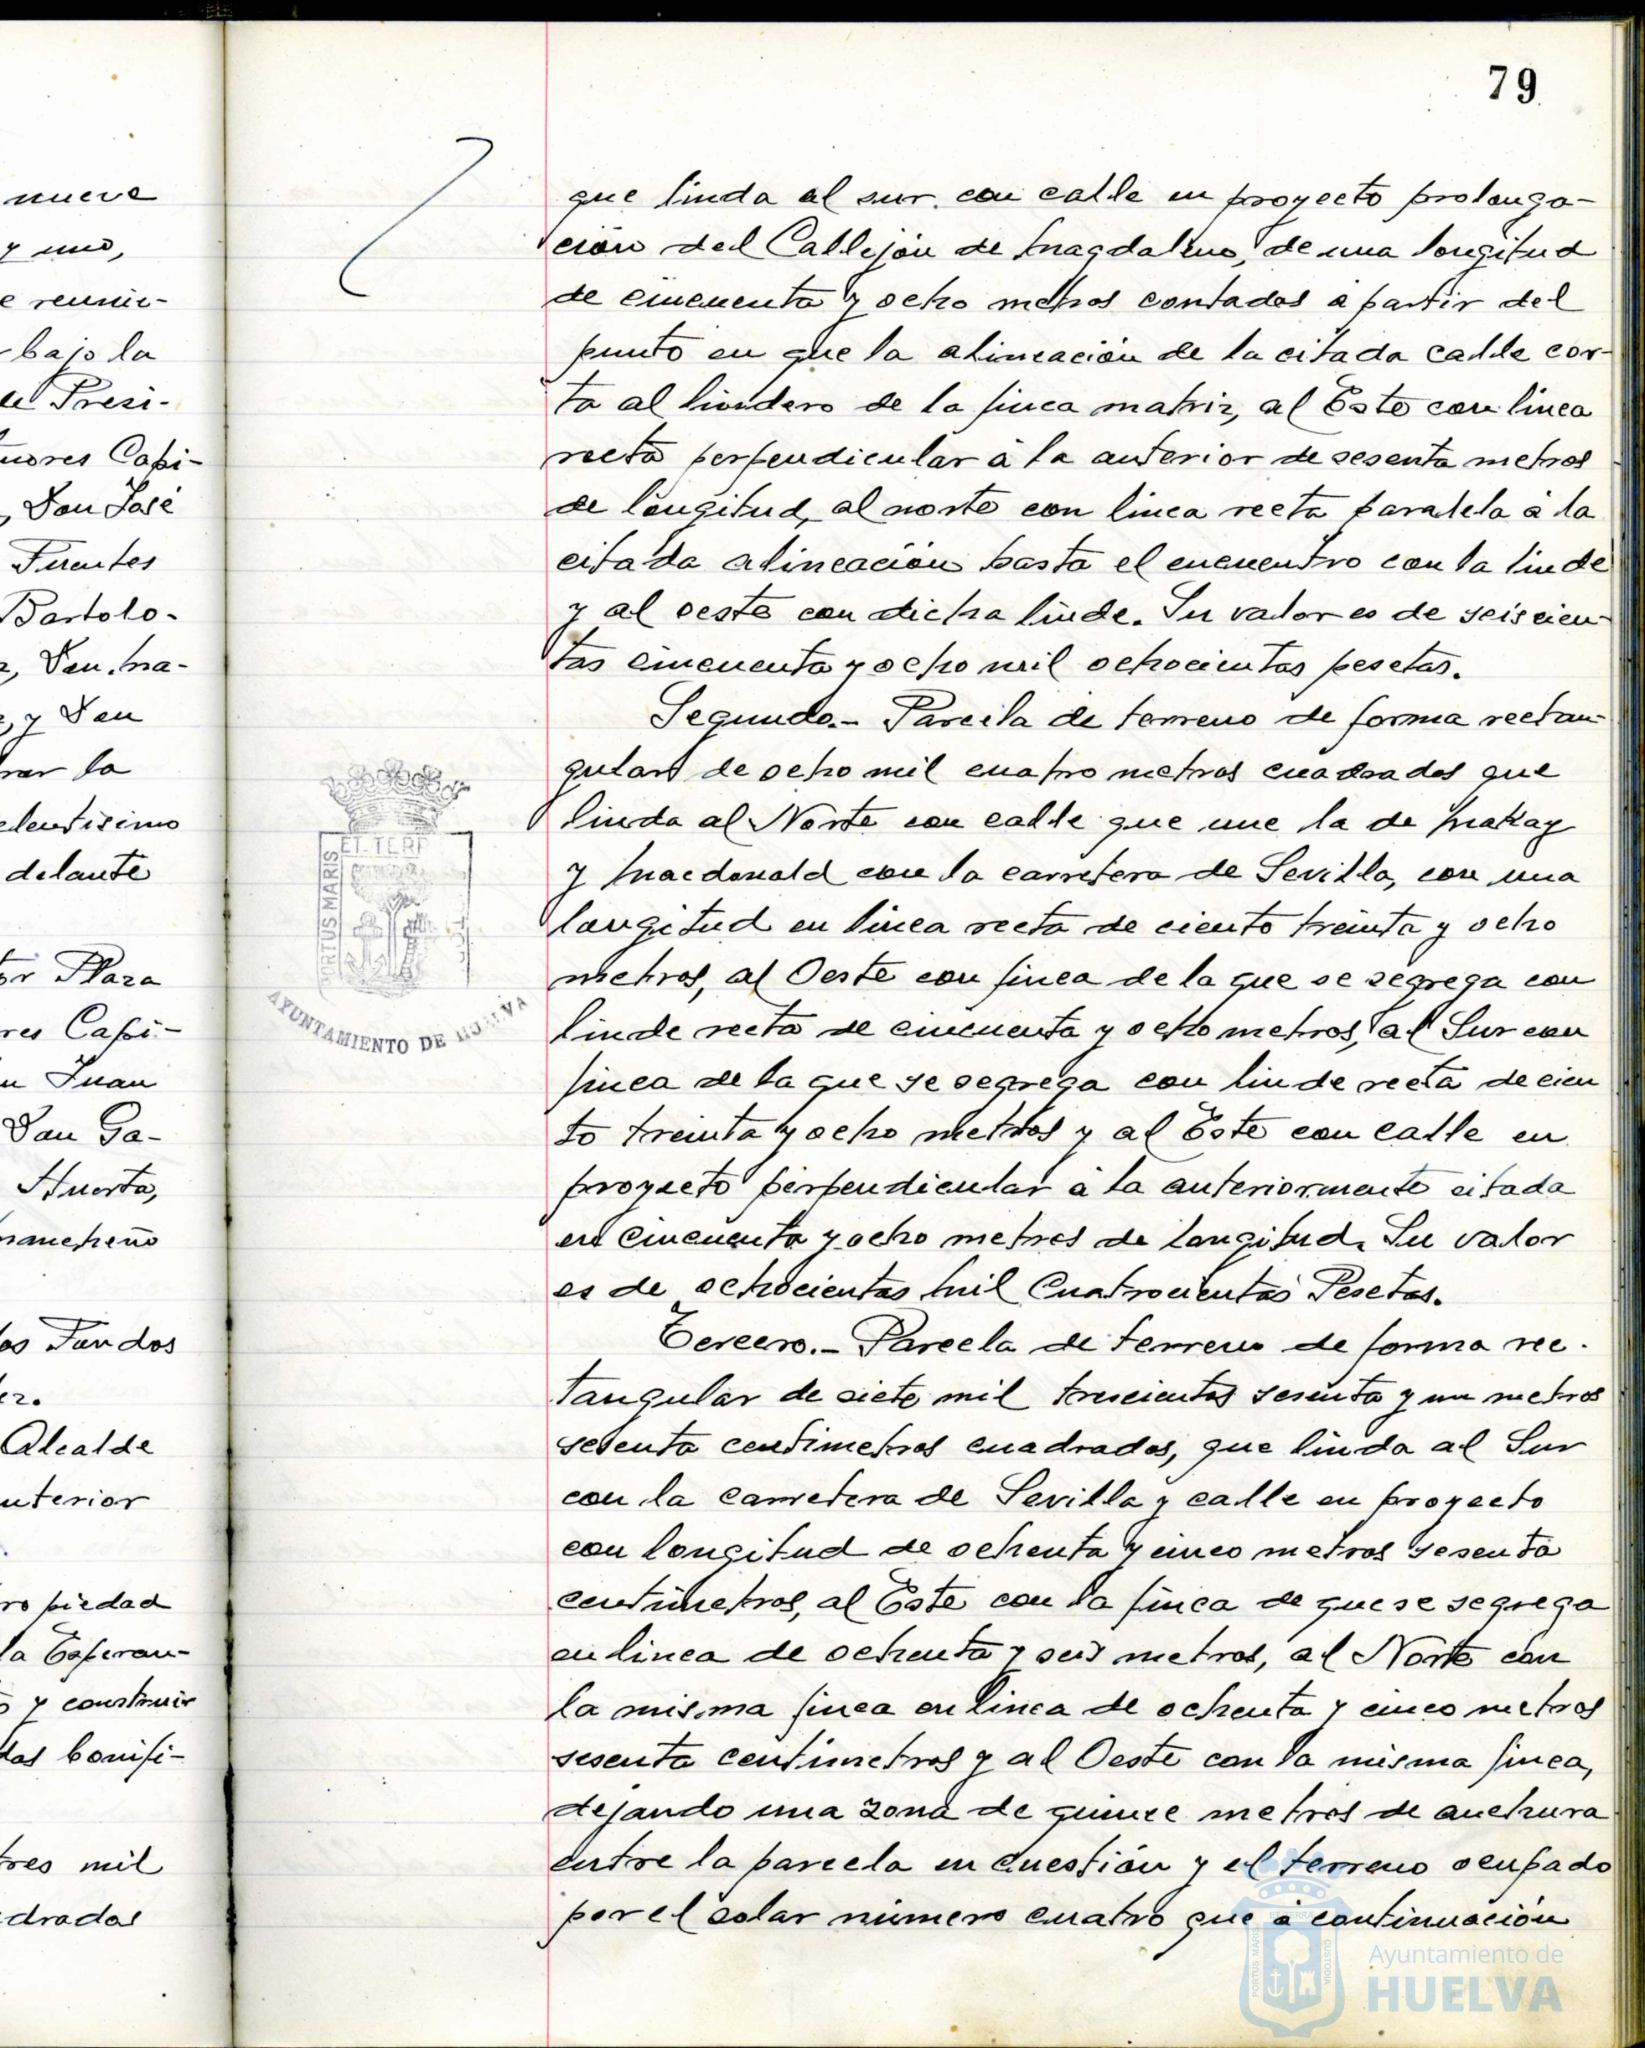 nueve
y uno,
e reunie-
bajo la
de Presi-
ñores Capi-
, Don José
Fuentes
Bartolo-
z, Don Ma-
z, y Don
rar la
elentísimo
delante
or Plaza
res Capi-
n Juan
Don Ga-
Huerta,
mancheño
os Fondos
ez.
Alcalde
nterior
ropiedad
la Esperan-
y construir
das bonifi-
tres mil
drados
79
que linda al sur. con calle en proyecto prolonga-
ción del Callejón de Magdaleno, de una longitud
de cincuenta y ocho metros contados a partir del
punto en que la alineación de la citada calle cor-
ta al lindero de la finca matriz, al Este con linea
recta perpendicular à la anterior de sesenta metros
de longitud, al norte con linea recta paralela à la
citada alineación hasta el encuentro con la linde
y al oeste con dicha linde. Su valor es de seiscien-
tas cincuenta y ocho mil ochocientas pesetas.
Segundo.- Parcela de terreno de forma rectan-
gular de ocho mil cuatro metros cuadrados que
linda al Norte con calle que une la de Makay
y Macdonald con la carretera de Sevilla, con una
longitud en linea recta de ciento treinta y ocho
metros, al Oeste con finca de la que se segrega con
linde recta de cincuenta y ocho metros, al Sur con
finca de la que se segrega con linde recta de cien
to treinta y ocho metros y al Este con calle en
proyecto perpendicular à la anteriormente citada
en cincuenta y ocho metros de longitud. Su valor
es de ochocientas mil Cuatrocientas Pesetas.
Tercero.- Parcela de terreno de forma rec-
tangular de siete mil trescientos sesenta y un metros
sesenta centimetros cuadrados, que linda al Sur
con la carretera de Sevilla y calle en proyecto
con longitud de ochenta y cinco metros sesenta
centimetros, al Este con la finca de que se segrega
en linea de ochenta y seis metros, al Norte con
la misma finca en linea de ochenta y cinco metros
sesenta centimetros y al Oeste con la misma finca,
dejando una zona de quince metros de anchura
entre la parcela en cuestión y el terreno ocupado
por el solar número cuatro que à continuación
PORTUS MARIS
ET TERR
AYUNTAMIENTO DE HUELVA
PORTUS MARIS
ET TERRAE
CUSTODIA
Ayuntamiento de
HUELVA